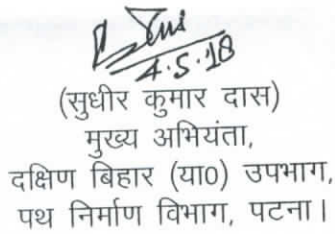 4.5.18
(सुधीर कुमार दास)
मुख्य अभियंता,
दक्षिण बिहार (या0) उपभाग,
पथ निर्माण विभाग, पटना।